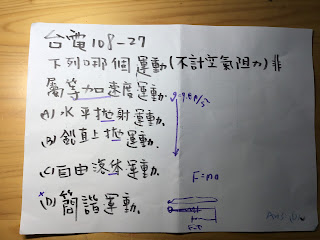 台電108-27
下列哪個運動(不計空氣阻力)非
屬等加速度運動.
(A)水平拋射運動.
(B)鉛直上拋運動.
(C)自由落体運動.
(D)簡諧運動.
F=ma